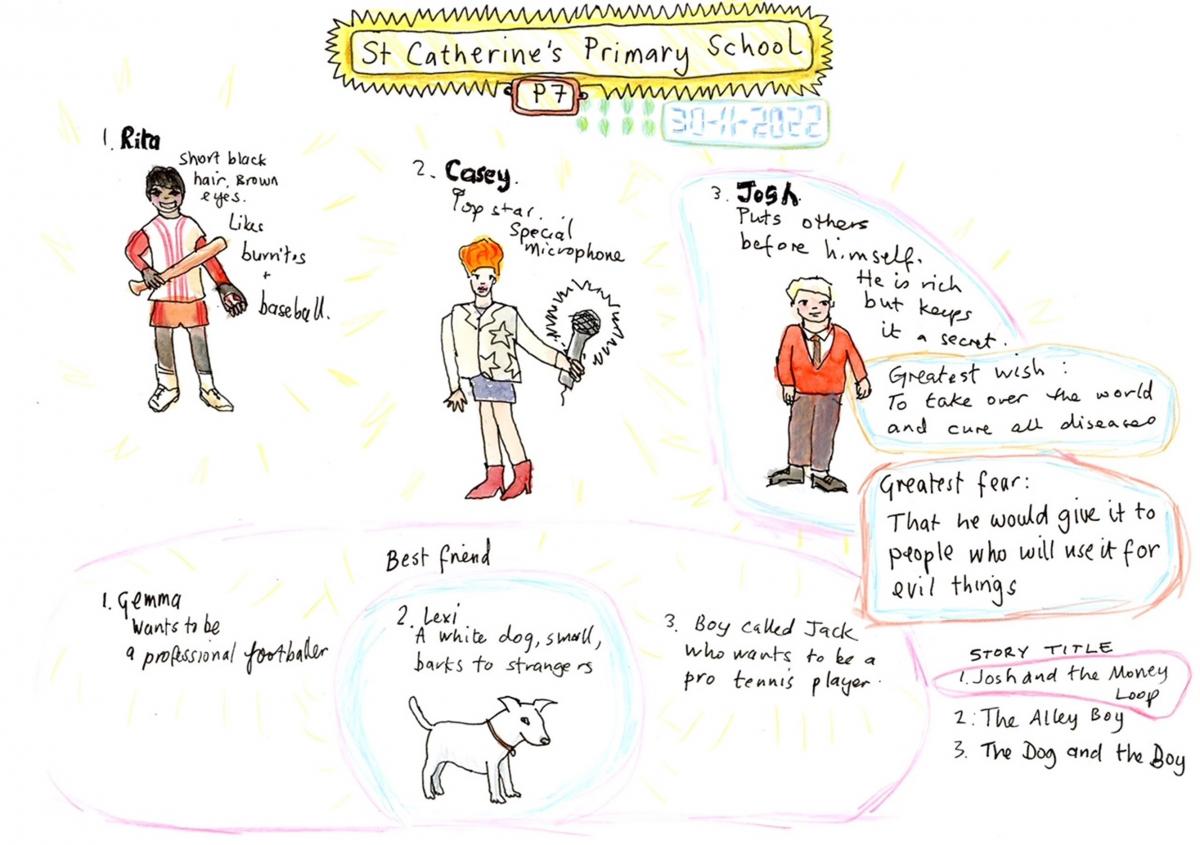 St Catherine's Primary School
P7
30-11-2022
1. Rita
Short black
hair. Brown
eyes.
Likes
burritos
+
baseball.
2. Casey.
Pop star.
Special
Microphone
3. Josh.
Puts others
before himself.
He is rich
but keeps
it a secret.
Greatest wish:
To take over the world
and cure all diseases
Greatest fear:
That he would give it to
people who will use it for
evil things
Best friend
1. Gemma
wants to be
a professional footballer
2. Lexi
A white dog, small,
barks to strangers
3. Boy called Jack
who wants to be a
pro tennis player.
STORY TITLE
1. Josh and the Money
Loop
2: The Alley Boy
3. The Dog and the Boy